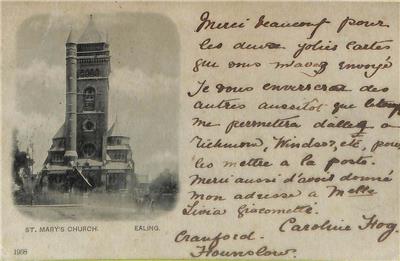 Merci beaucoup pour
les deux jolies cartes
que vous m'avez envoyé
Je vous enverserai des
autres aussitôt que le temps
me permettra d'aller a
Richmond, Windsor, etc, pour
les mettre a la poste.
Merci aussi d'avoir donné
mon adresse a Melle
Livia Giacometti.
Caroline Hog.
Cranford.
Hounslow.
ST. MARY'S CHURCH. EALING.
1968